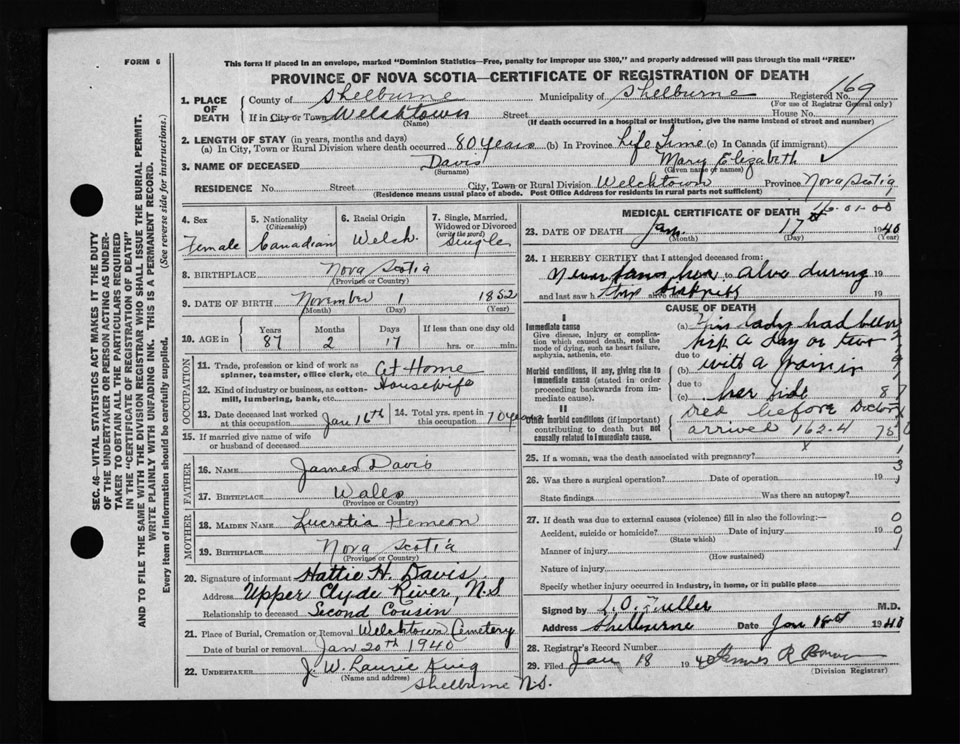 FORM 6
This form if placed in an envelope, marked "Dominion Statistics—Free, penalty for improper use $300," and properly addressed will pass through the mail "FREE"
PROVINCE OF NOVA SCOTIA—CERTIFICATE OF REGISTRATION OF DEATH
169
1. PLACE OF DEATH County of Shelburne Municipality of Shelburne Registered No.
(For use of Registrar General only)
If in City or Town Welshtown Street House No.
(Name) (If death occurred in a hospital or institution, give the name instead of street and number)
2. LENGTH OF STAY (in years, months and days)
(a) In City, Town or Rural Division where death occurred 80 years (b) In Province Life Time (c) In Canada (if immigrant)
3. NAME OF DECEASED Davis Mary Elizabeth
(Surname) (Given name or names)
RESIDENCE No. Street City, Town or Rural Division Welchtown Province Nova Scotia
(Residence means usual place of abode. Post Office Address for residents in rural parts not sufficient)
4. Sex Female
5. Nationality (Citizenship) Canadian
6. Racial Origin Welch
7. Single, Married, Widowed or Divorced (write the word) Single
8. BIRTHPLACE Nova Scotia
(Province or Country)
9. DATE OF BIRTH November 1 1852
(Month) (Day) (Year)
10. AGE in Years Months Days If less than one day old
87 2 17 hrs. or min.
OCCUPATION
11. Trade, profession or kind of work as spinner, teamster, office clerk, etc. At Home
12. Kind of industry or business, as cotton-mill, lumbering, bank, etc. Housewife
13. Date deceased last worked at this occupation Jan 16th 14. Total yrs. spent in this occupation 70 years
15. If married give name of wife or husband of deceased
FATHER
16. NAME James Davis
17. BIRTHPLACE Wales
(Province or Country)
MOTHER
18. MAIDEN NAME Lucretia Hemeon
19. BIRTHPLACE Nova Scotia
(Province or Country)
20. Signature of informant Hattie H. Davis
Address Upper Clyde River, N.S
Relationship to deceased Second Cousin
21. Place of Burial, Cremation or Removal Welchtown Cemetery
Date of burial or removal Jan 20th 1940
22. UNDERTAKER J. W. Laurie
(Name and address)
Shelburne N.S.
MEDICAL CERTIFICATE OF DEATH
23. DATE OF DEATH Jan. 17th 1940
(Month) (Day) (Year)
24. I HEREBY CERTIFY that I attended deceased from:
her alive during 19
and last saw h alive on 19
CAUSE OF DEATH
I
Immediate cause
Give disease, injury or complication which caused death, not the mode of dying, such as heart failure, asphyxia, asthenia, etc.
Morbid conditions, if any, giving rise to immediate cause (stated in order proceeding backwards from immediate cause).
II
Other morbid conditions (if important) contributing to death but not causally related to immediate cause.
(a) This lady had been
sick a day or two
due to
(b) with a pain in
due to
(c) her side 87
died before Doctor
arrived 162.4
25. If a woman, was the death associated with pregnancy?
26. Was there a surgical operation? Date of operation 19
State findings Was there an autopsy?
27. If death was due to external causes (violence) fill in also the following:—
Accident, suicide or homicide? Date of injury 19
(State which)
Manner of injury
(How sustained)
Nature of injury
Specify whether injury occurred in industry, in home, or in public place
Signed by L. O. Fuller M.D.
Address Shelburne Date Jan 18th 1940
28. Registrar's Record Number
29. Filed Jan 18 1940
(Division Registrar)
SEC. 46—VITAL STATISTICS ACT MAKES IT THE DUTY
OF THE UNDERTAKER OR PERSON ACTING AS UNDER-
TAKER TO OBTAIN ALL THE PARTICULARS REQUIRED
IN THE "CERTIFICATE OF REGISTRATION OF DEATH"
AND TO FILE THE SAME WITH THE DIVISION REGISTRAR WHO SHALL ISSUE THE BURIAL PERMIT.
WRITE PLAINLY WITH UNFADING INK. THIS IS A PERMANENT RECORD.
Every item of information should be carefully supplied. (See reverse side for instructions.)